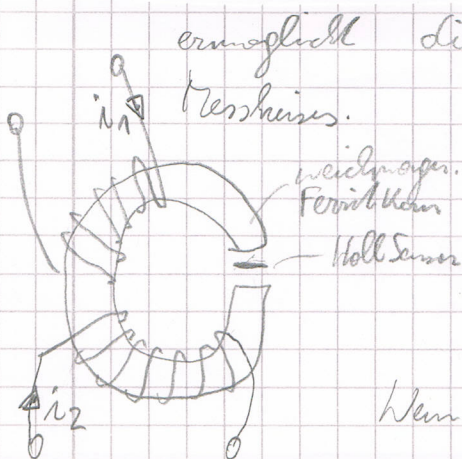 ermöglicht di
Messkreises.
i1
weichmagn.
Ferritkern
Hall Sensor
i2
Wenn